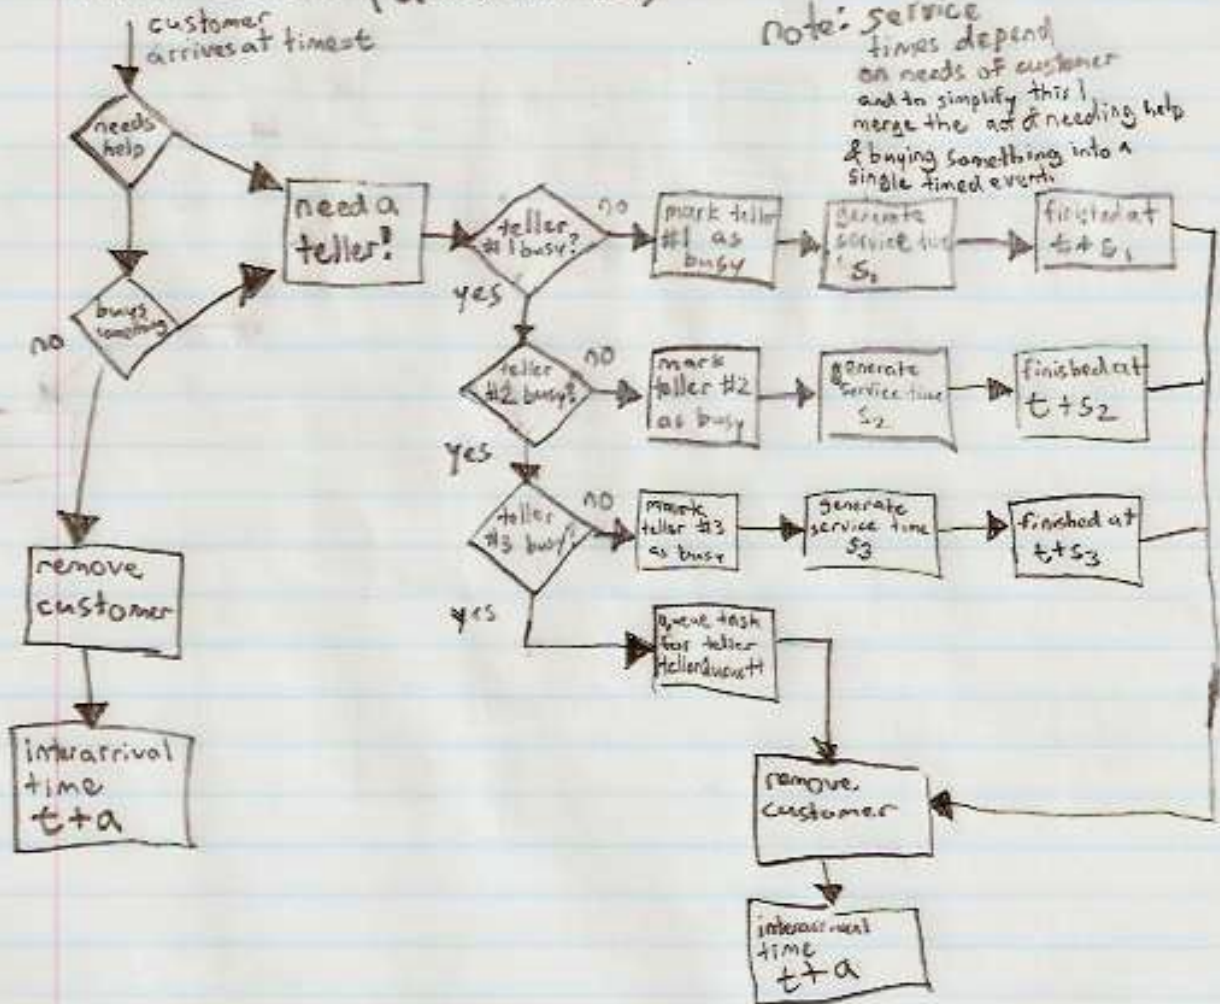 customer
arrives at time=t
note: service
times depend
on needs of customer
and to simplify this I
merge the act of needing help
& buying something into a
single timed event.
needs
help
need a
teller!
teller
#1 busy?
no
mark teller
#1 as
busy
generate
service time
S1
finished at
t+S1
yes
buys
something
no
teller
#2 busy?
no
mark
teller #2
as busy
generate
service time
S2
finished at
t+S2
yes
teller
#3 busy?
no
mark
teller #3
as busy
generate
service time
S3
finished at
t+S3
yes
queue task
for teller
tellerQueue++
remove
customer
interarrival
time
t+a
remove
customer
interarrival
time
t+a